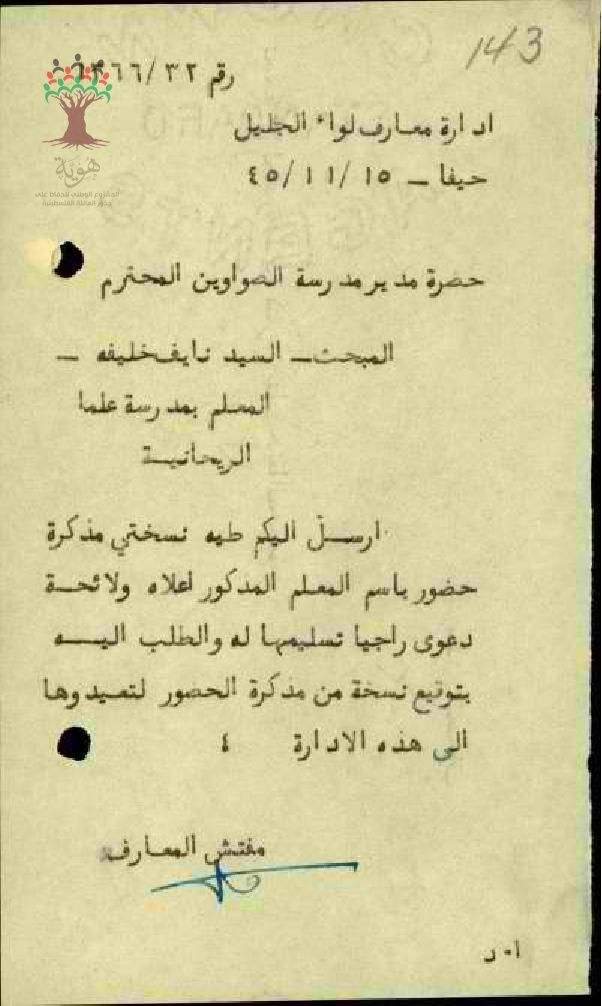 143
رقم ١٣٦٦/٣٢
ادارة معارف لواء الجليل
حيفا ــ ٤٥/١١/١٥
هوية
المشروع الوطني للحفاظ على
جذور العائلة الفلسطينية
حضرة مدير مدرسة الصواوين المحترم
المبحث ــ السيد نايف خليفه ــ
المعلم بمدرسة علما
الريحانية
ارسل اليكم طيه نسختي مذكرة
حضور باسم المعلم المذكور اعلاه ولائحة
دعوى راجيا تسليمها له والطلب اليه
بتوقيع نسخة من مذكرة الحضور لتعيدوها
الى هذه الادارة ؛
مفتش المعارف
ا٠ د